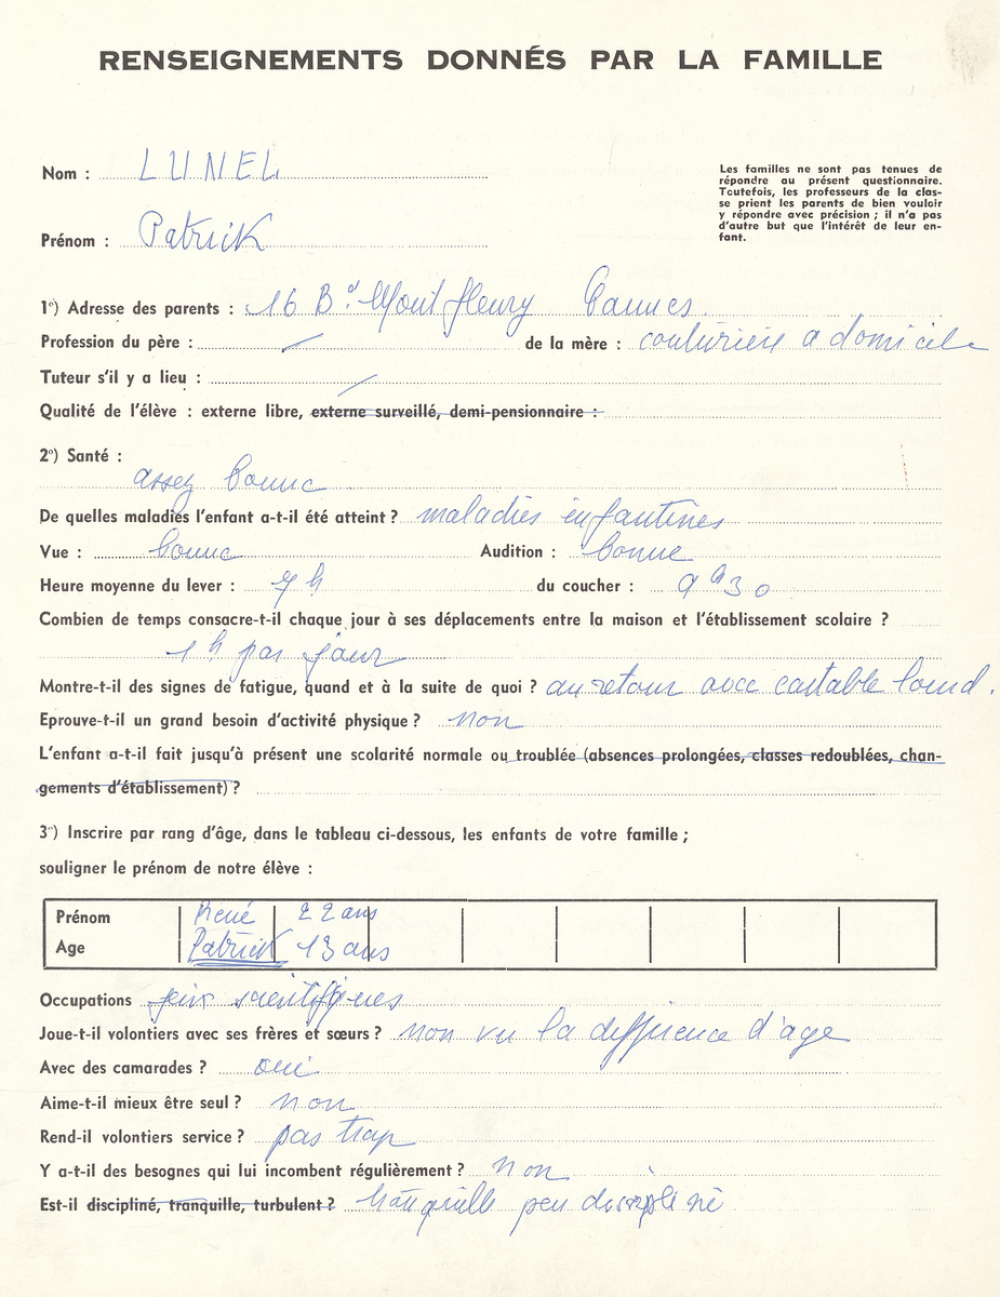 RENSEIGNEMENTS DONNÉS PAR LA FAMILLE
Nom : LUNEL
Les familles ne sont pas tenues de
répondre au présent questionnaire.
Toutefois, les professeurs de la clas-
se prient les parents de bien vouloir
y répondre avec précision ; il n'a pas
d'autre but que l'intérêt de leur en-
fant.
Prénom : Patrick
1°) Adresse des parents : 16 Bd Mont fleury Cannes
Profession du père : / de la mère : couturière a domicile
Tuteur s'il y a lieu : /
Qualité de l'élève : externe libre, externe surveillé, demi-pensionnaire :
2°) Santé :
assez bonne
De quelles maladies l'enfant a-t-il été atteint ? maladies enfantines
Vue : bonne Audition : bonne
Heure moyenne du lever : 7 h du coucher : 9 h 30
Combien de temps consacre-t-il chaque jour à ses déplacements entre la maison et l'établissement scolaire ?
1 h par jour
Montre-t-il des signes de fatigue, quand et à la suite de quoi ? au retour avec cartable lourd.
Eprouve-t-il un grand besoin d'activité physique ? non
L'enfant a-t-il fait jusqu'à présent une scolarité normale ou troublée (absences prolongées, classes redoublées, chan-
gements d'établissement) ?
3°) Inscrire par rang d'âge, dans le tableau ci-dessous, les enfants de votre famille ;
souligner le prénom de notre élève :
Prénom René 22 ans
Age Patrick 13 ans
Occupations jeux scientifiques
Joue-t-il volontiers avec ses frères et sœurs ? non vu la difference d'age
Avec des camarades ? oui
Aime-t-il mieux être seul ? non
Rend-il volontiers service ? pas trop
Y a-t-il des besognes qui lui incombent régulièrement ? non
Est-il discipliné, tranquille, turbulent ? tranquille peu discipliné